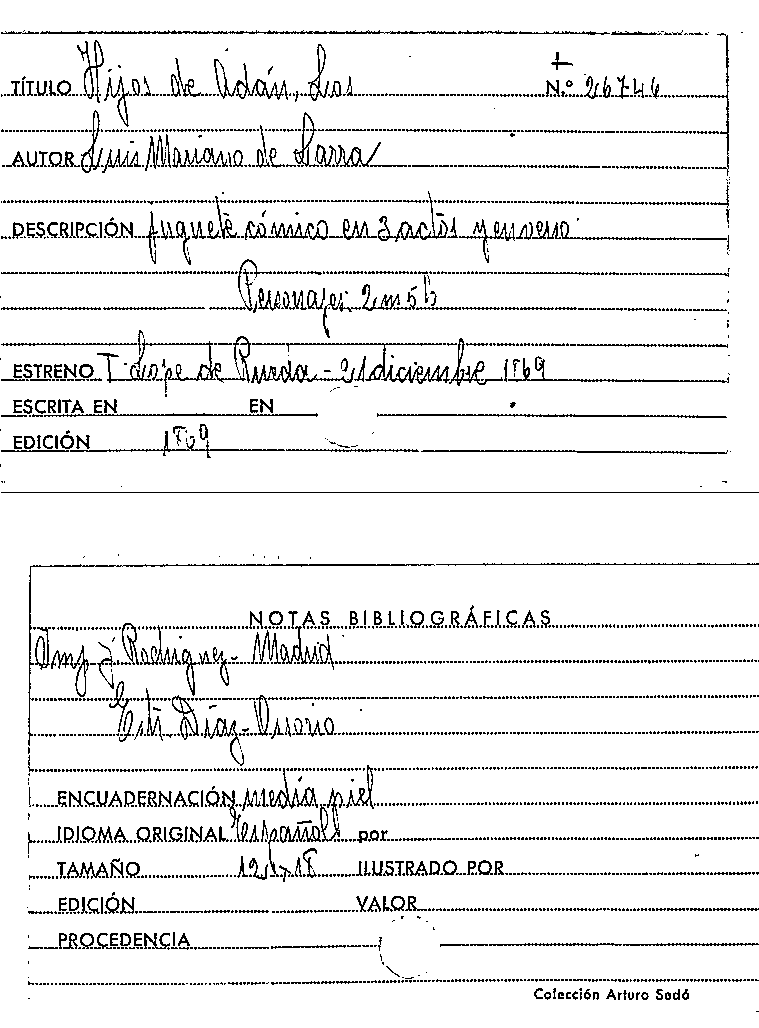 TÍTULO Hijos de Adán, Los N.º 26746
AUTOR Luis Mariano de Larra
DESCRIPCIÓN Juguete cómico en 3 actos y en verso
Personajes: 2 m 5 h
ESTRENO T. Lope de Rueda - 21 diciembre 1869
ESCRITA EN EN
EDICIÓN 1869
NOTAS BIBLIOGRÁFICAS
Imp J. Rodriguez - Madrid
Díaz - Ossorio
ENCUADERNACIÓN media piel
IDIOMA ORIGINAL español por
TAMAÑO ILUSTRADO POR
EDICIÓN VALOR
PROCEDENCIA
Colección Arturo Sedó